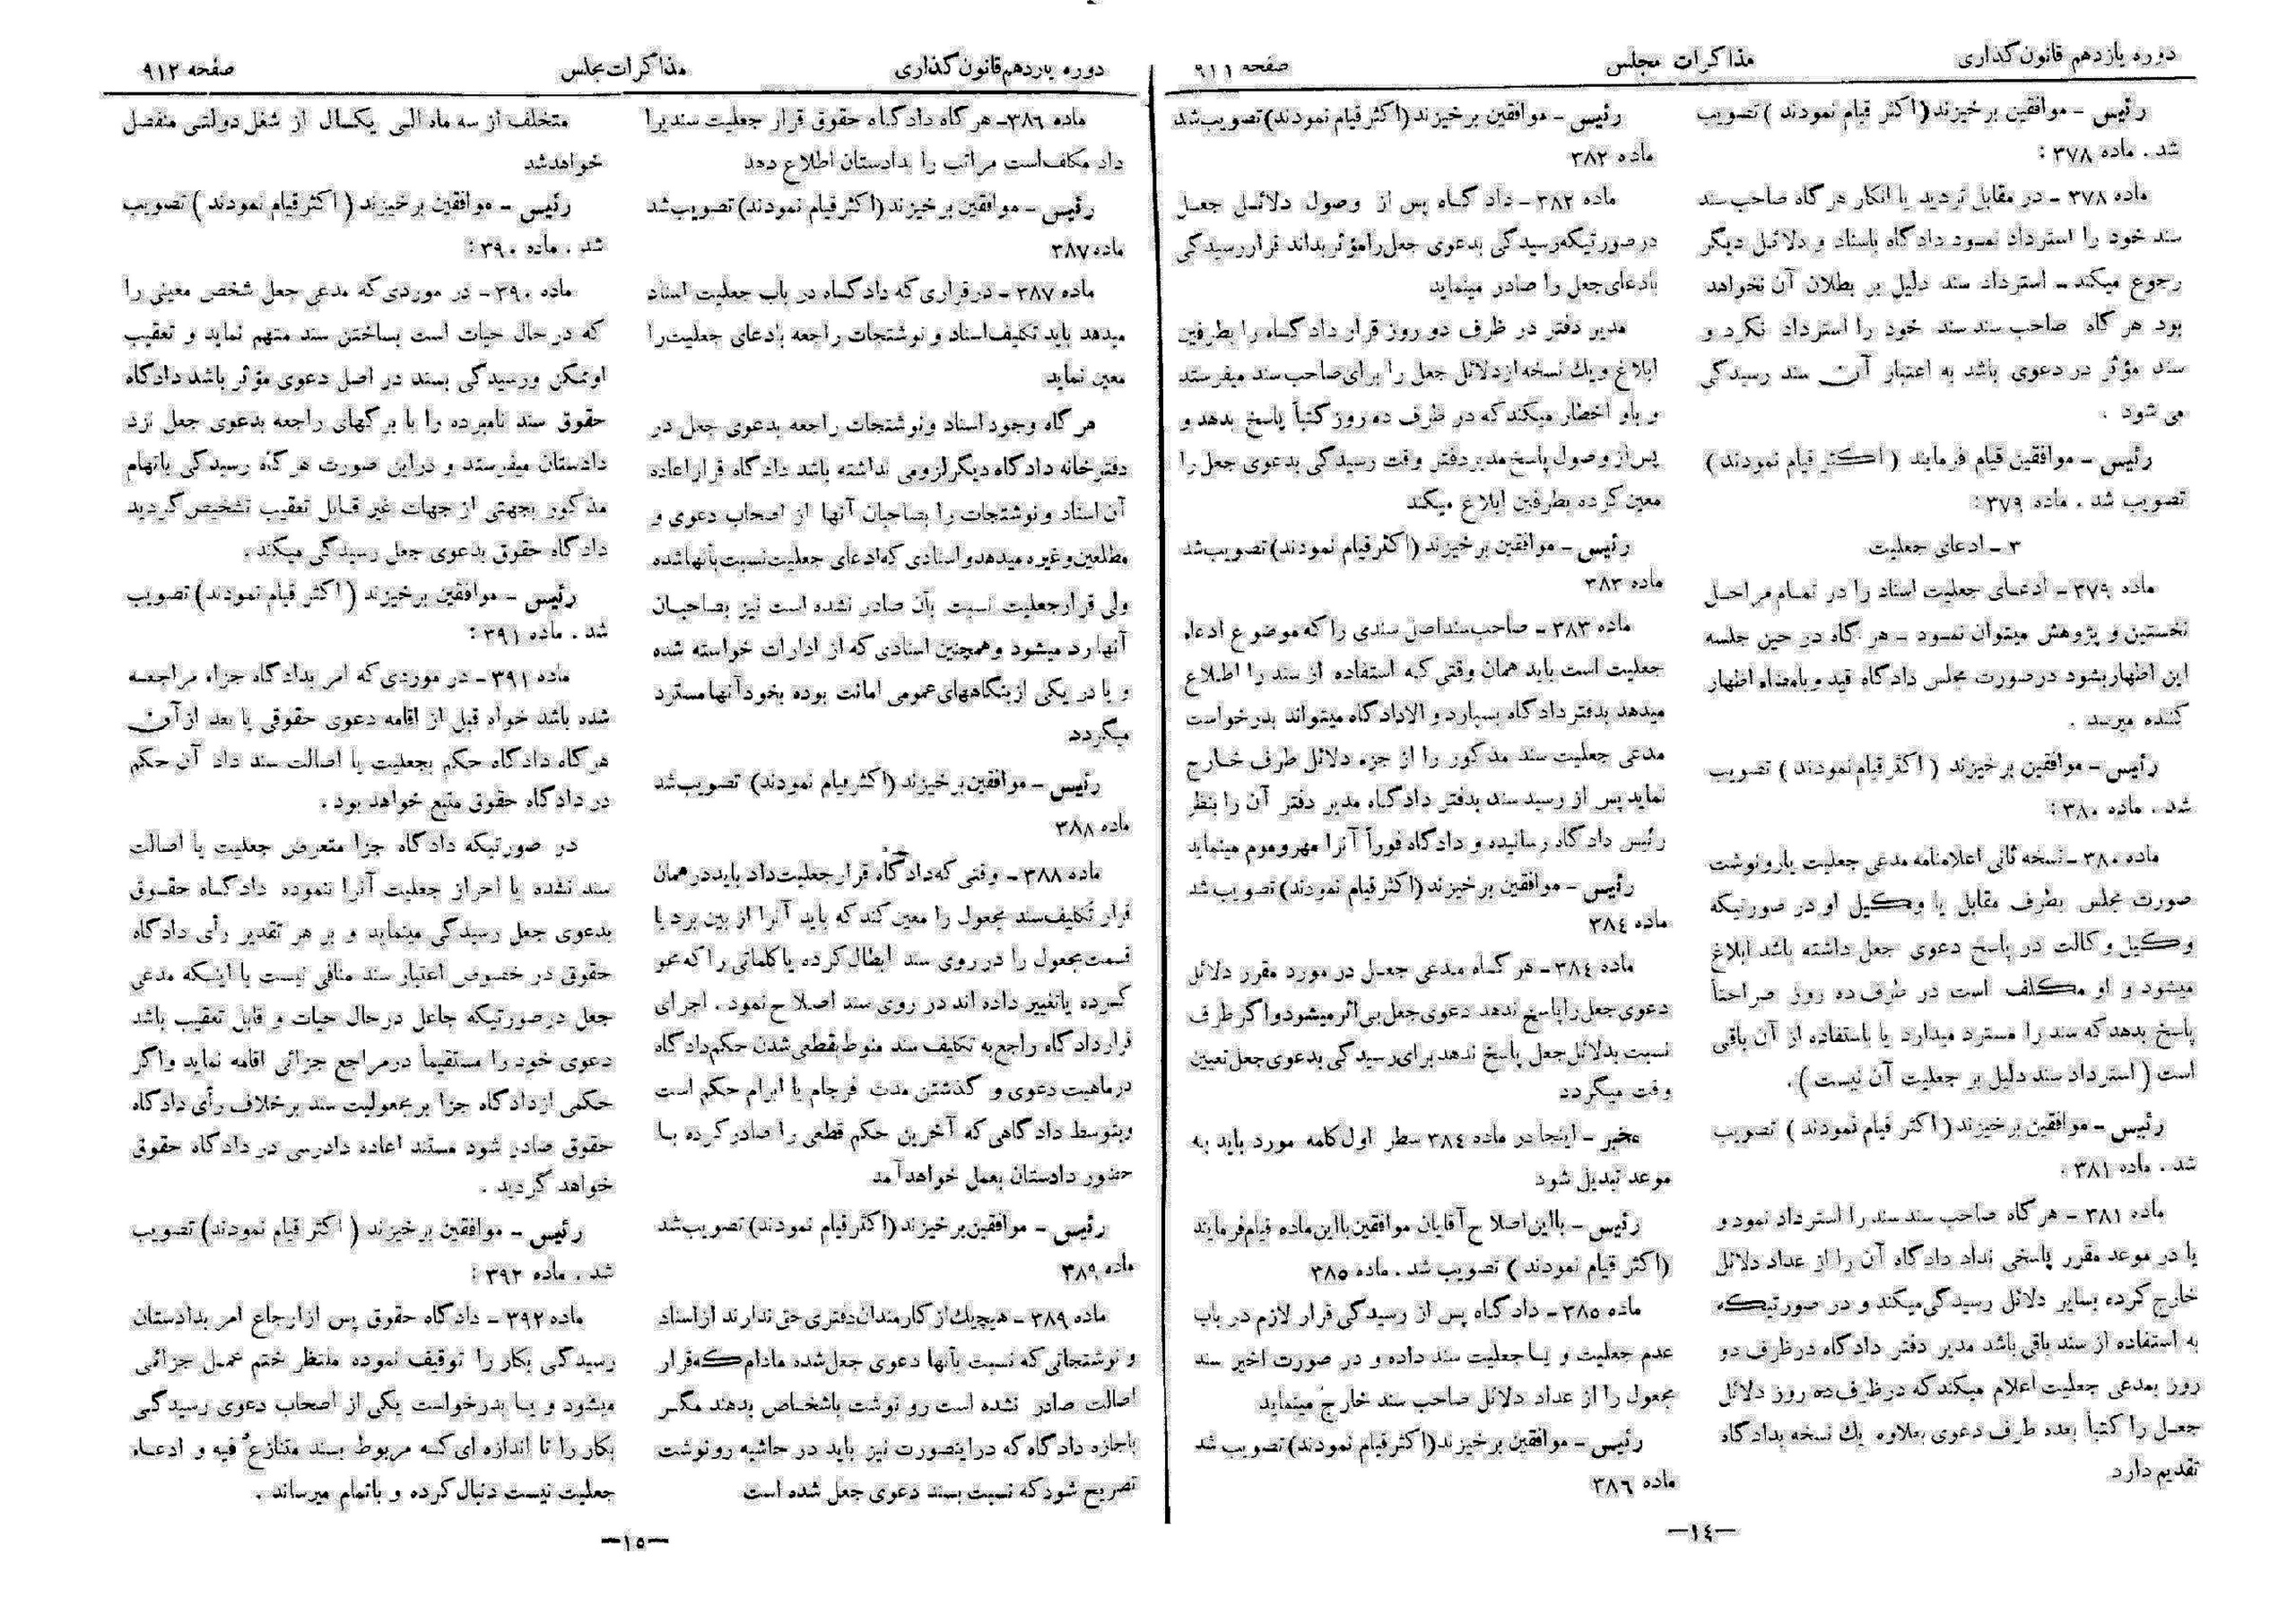 دوره یازدهم قانون گذاری
مذاکرات مجلس
صفحه ۹۱۱
رئیس - موافقین برخیزند (اکثر قیام نمودند) تصویب
شد . ماده ۳۷۸ :
ماده ۳۷۸ - در مقابل تردید یا انکار هر گاه صاحب سند
سند خود را استرداد نمود دادگاه باسناد و دلائل دیگر
رجوع میکند - استرداد سند دلیل بر بطلان آن نخواهد
بود هر گاه صاحب سند سند خود را استرداد نکرد و
سند مؤثر در دعوی باشد به اعتبار آن سند رسیدگی
می شود .
رئیس - موافقین قیام فرمایند (اکثر قیام نمودند)
تصویب شد . ماده ۳۷۹ :
۳ - ادعای جعلیت
ماده ۳۷۹ - ادعای جعلیت اسناد را در تمام مراحل
نخستین و پژوهش میتوان نمود - هر گاه در حین جلسه
این اظهار بشود در صورت مجلس دادگاه قید و بامضاء اظهار
کننده میرسد .
رئیس - موافقین برخیزند (اکثر قیام نمودند) تصویب
شد . ماده ۳۸۰ :
ماده ۳۸۰ - نسخه ثانی اعلامنامه مدعی جعلیت یا رونوشت
صورت مجلس بطرف مقابل یا وکیل او در صورتیکه
وکیل وکالت در پاسخ دعوی جعل داشته باشد ابلاغ
میشود و او مکلف است در ظرف ده روز صراحتاً
پاسخ بدهد که سند را مسترد میدارد یا باستفاده از آن باقی
است (استرداد سند دلیل بر جعلیت آن نیست) .
رئیس - موافقین برخیزند (اکثر قیام نمودند) تصویب
شد . ماده ۳۸۱ :
ماده ۳۸۱ - هر گاه صاحب سند سند را استرداد نمود و
یا در موعد مقرر پاسخی نداد دادگاه آن را از عداد دلائل
خارج کرده بسایر دلائل رسیدگی میکند و در صورتیکه
به استفاده از سند باقی باشد مدیر دفتر دادگاه در ظرف دو
روز بمدعی جعلیت اعلام میکند که در ظرف ده روز دلائل
جعل را کتباً بعده طرف دعوی بعلاوه یك نسخه بدادگاه
تقدیم دارد
رئیس - موافقین برخیزند (اکثر قیام نمودند) تصویب شد
ماده ۳۸۲
ماده ۳۸۲ - دادگاه پس از وصول دلائل جعل
در صورتیکه رسیدگی بدعوی جعل را مؤثر بداند قرار رسیدگی
بادعای جعل را صادر مینماید
مدیر دفتر در ظرف دو روز قرار دادگاه را بطرفین
ابلاغ و یك نسخه از دلائل جعل را برای صاحب سند میفرستد
و باو اخطار میکند که در ظرف ده روز کتباً پاسخ بدهد و
پس از وصول پاسخ مدیر دفتر وقت رسیدگی بدعوی جعل را
معین کرده بطرفین ابلاغ میکند
رئیس - موافقین برخیزند (اکثر قیام نمودند) تصویب شد
ماده ۳۸۳
ماده ۳۸۳ - صاحب سند اصل سندی را که موضوع ادعاء
جعلیت است باید همان وقتی که استفاده از سند را اطلاع
میدهد بدفتر دادگاه بسپارد و الا دادگاه میتواند بدرخواست
مدعی جعلیت سند مذکور را از جزء دلائل طرف خارج
نماید پس از رسید سند بدفتر دادگاه مدیر دفتر آن را بنظر
رئیس دادگاه رسانیده و دادگاه فوراً آنرا مهر و موم مینماید
رئیس - موافقین برخیزند (اکثر قیام نمودند) تصویب شد
ماده ۳۸٤
ماده ۳۸٤ - هر گاه مدعی جعل در مورد مقرر دلائل
دعوی جعل را پاسخ ندهد دعوی جعل بی اثر میشود و اگر طرف
نسبت بدلائل جعل پاسخ ندهد برای رسیدگی بدعوی جعل تعیین
وقت میگردد
مخبر - اینجا در ماده ۳۸٤ سطر اول کلمه مورد باید به
موعد تبدیل شود
رئیس - با این اصلاح آقایان موافقین با این ماده قیام فرمایند
(اکثر قیام نمودند) تصویب شد . ماده ۳۸۵
ماده ۳۸۵ - دادگاه پس از رسیدگی قرار لازم در باب
عدم جعلیت و یا جعلیت سند داده و در صورت اخیر سند
مجعول را از عداد دلائل صاحب سند خارج مینماید
رئیس - موافقین برخیزند (اکثر قیام نمودند) تصویب شد
ماده ۳۸٦
-۱٤-
دوره یازدهم قانون گذاری
مذاکرات مجلس
صفحه ۹۱۲
ماده ۳۸٦ - هر گاه دادگاه حقوق قرار جعلیت سندیرا
داد مکلف است مراتب را بدادستان اطلاع دهد
رئیس - موافقین برخیزند (اکثر قیام نمودند) تصویب شد
ماده ۳۸۷
ماده ۳۸۷ - در قراری که دادگاه در باب جعلیت اسناد
میدهد باید تکلیف اسناد و نوشتجات راجعه بادعای جعلیت را
معین نماید
هر گاه وجود اسناد و نوشتجات راجعه بدعوی جعل در
دفترخانه دادگاه دیگر لزومی نداشته باشد دادگاه قرار اعاده
آن اسناد و نوشتجات را بصاحبان آنها از اصحاب دعوی و
مطلعین و غیره میدهد و اسنادی که ادعای جعلیت نسبت بآنها شده
ولی قرار جعلیت نسبت بآن صادر نشده است نیز بصاحبان
آنها رد میشود و همچنین اسنادی که از ادارات خواسته شده
و یا در یکی از بنگاههای عمومی امانت بوده بخود آنها مسترد
میگردد
رئیس - موافقین برخیزند (اکثر قیام نمودند) تصویب شد
ماده ۳۸۸
ماده ۳۸۸ - وقتی که دادگاه قرار جعلیت داد باید در همان
قرار تکلیف سند مجعول را معین کند که باید آنرا از بین برد یا
قسمت مجعول را در روی سند ابطال کرده یا کلماتی را که محو
کرده یا تغییر داده اند در روی سند اصلاح نمود . اجرای
قرار دادگاه راجع به تکلیف سند منوط بقطعی شدن حکم دادگاه
در ماهیت دعوی و گذشتن مدت فرجام یا ابرام حکم است
و بتوسط دادگاهی که آخرین حکم قطعی را صادر کرده با
حضور دادستان بعمل خواهد آمد
رئیس - موافقین برخیزند (اکثر قیام نمودند) تصویب شد
ماده ۳۸۹
ماده ۳۸۹ - هیچیك از کارمندان دفتری حق ندارند از اسناد
و نوشتجاتی که نسبت بآنها دعوی جعل شده مادام که قرار
اصالت صادر نشده است رونوشت باشخاص بدهند مگر
باجازه دادگاه که در اینصورت نیز باید در حاشیه رونوشت
تصریح شود که نسبت بسند دعوی جعل شده است
متخلف از سه ماه الی یکسال از شغل دولتی منفصل
خواهد شد
رئیس - موافقین برخیزند (اکثر قیام نمودند) تصویب
شد . ماده ۳۹۰ :
ماده ۳۹۰ - در موردی که مدعی جعل شخص معینی را
که در حال حیات است بساختن سند متهم نماید و تعقیب
او ممکن و رسیدگی بسند در اصل دعوی مؤثر باشد دادگاه
حقوق سند نامبرده را با برگهای راجعه بدعوی جعل نزد
دادستان میفرستد و در این صورت هر گاه رسیدگی باتهام
مذکور بجهتی از جهات غیر قابل تعقیب تشخیص گردید
دادگاه حقوق بدعوی جعل رسیدگی میکند .
رئیس - موافقین برخیزند (اکثر قیام نمودند) تصویب
شد . ماده ۳۹۱ :
ماده ۳۹۱ - در موردی که امر بدادگاه جزاء مراجعه
شده باشد خواه قبل از اقامه دعوی حقوقی یا بعد از آن
هر گاه دادگاه حکم بجعلیت یا اصالت سند داد آن حکم
در دادگاه حقوق متبع خواهد بود .
در صورتیکه دادگاه جزا متعرض جعلیت یا اصالت
سند نشده یا احراز جعلیت آنرا ننموده دادگاه حقوق
بدعوی جعل رسیدگی مینماید و بر هر تقدیر رأی دادگاه
حقوق در خصوص اعتبار سند منافی نیست با اینکه مدعی
جعل در صورتیکه جاعل در حال حیات و قابل تعقیب باشد
دعوی خود را مستقیماً در مراجع جزائی اقامه نماید و اگر
حکمی از دادگاه جزا بر مجعولیت سند بر خلاف رأی دادگاه
حقوق صادر شود مستند اعاده دادرسی در دادگاه حقوق
خواهد گردید .
رئیس - موافقین برخیزند (اکثر قیام نمودند) تصویب
شد . ماده ۳۹۲ :
ماده ۳۹۲ - دادگاه حقوق پس از ارجاع امر بدادستان
رسیدگی بکار را توقیف نموده منتظر ختم عمل جزائی
میشود و یا بدرخواست یکی از اصحاب دعوی رسیدگی
بکار را تا اندازه ای که مربوط بسند متنازع فیه و ادعاء
جعلیت نیست دنبال کرده و باتمام میرساند .
-۱۵-